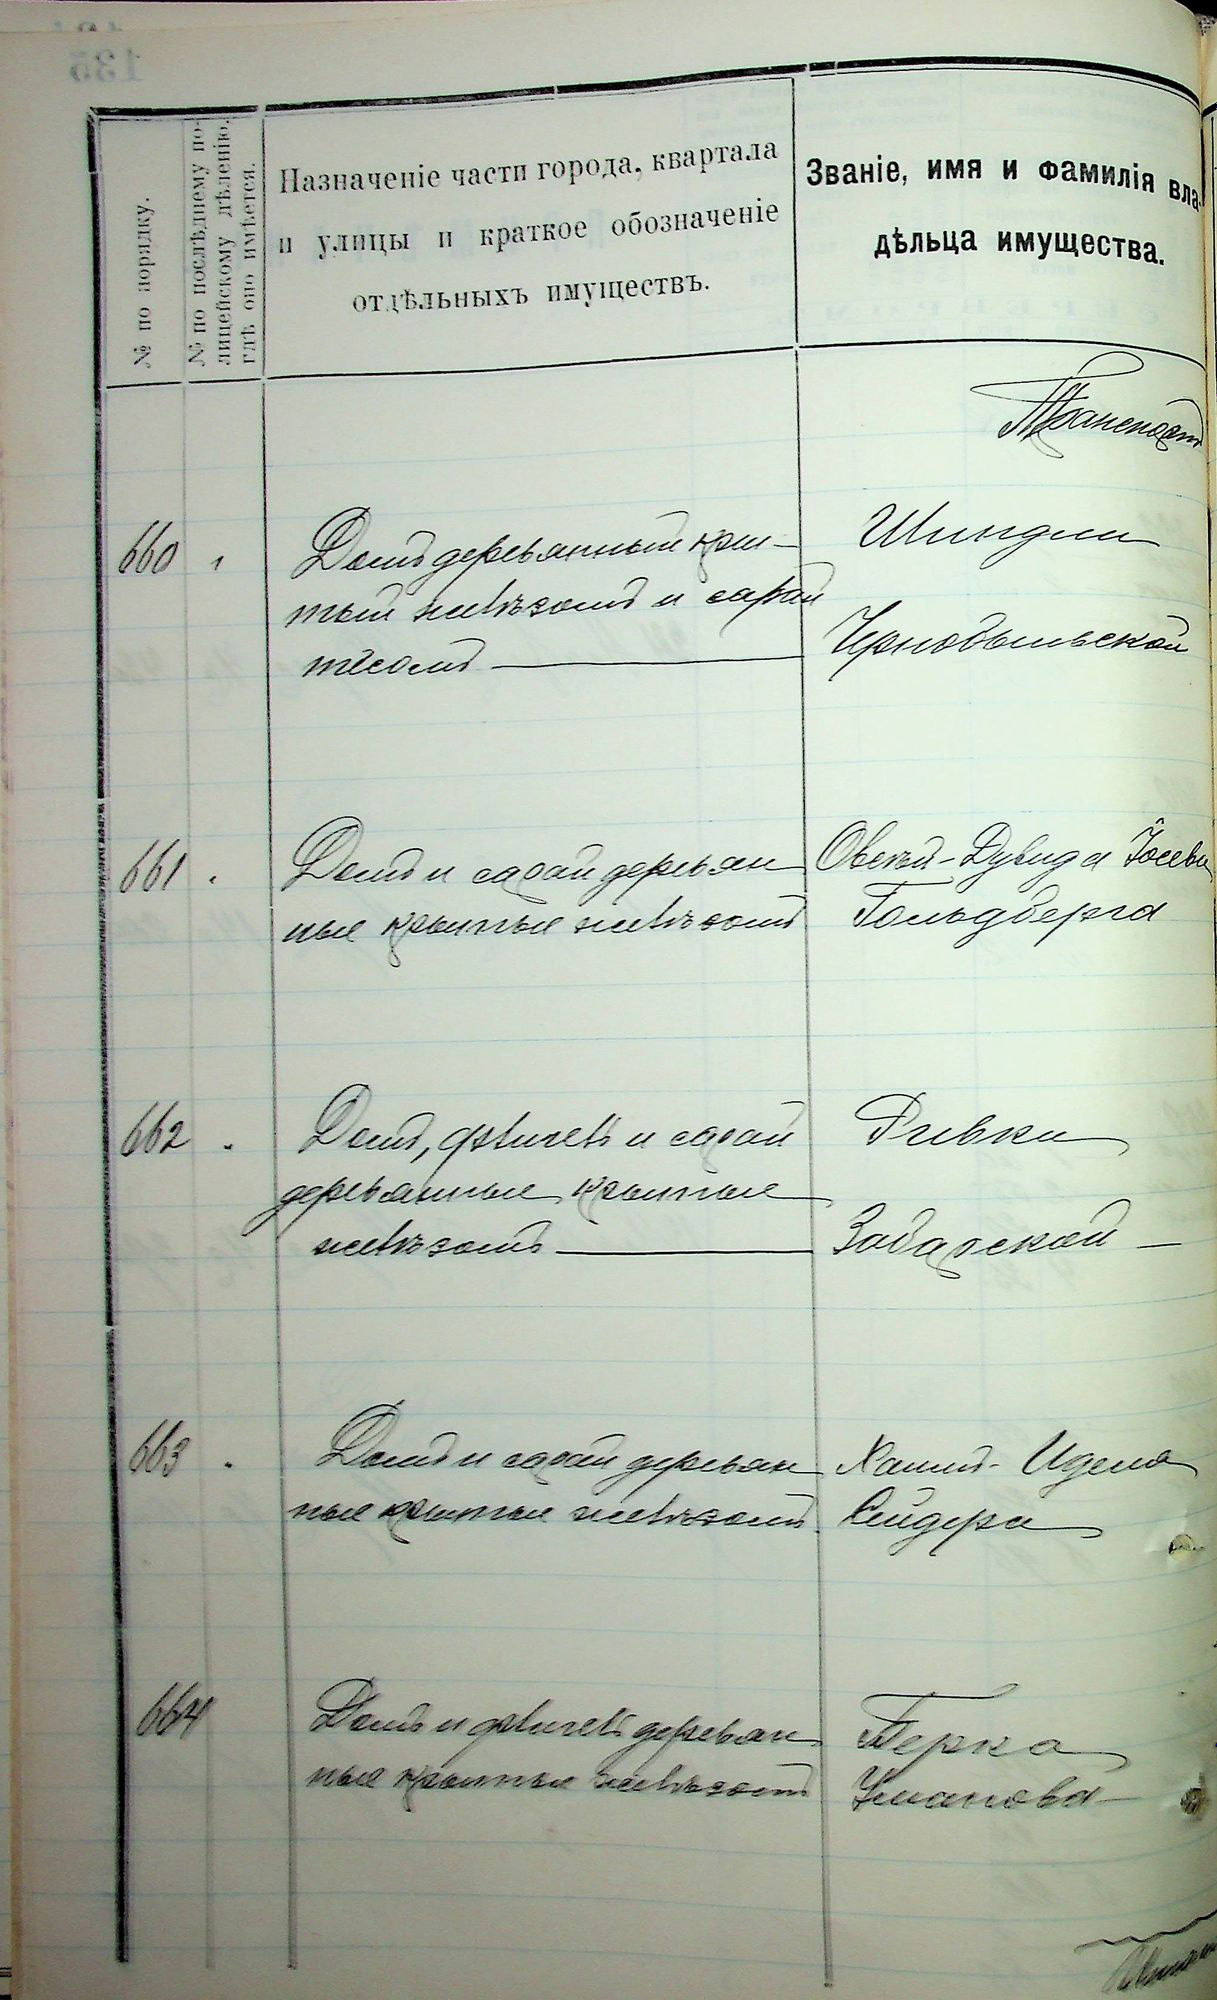 № по порядку.
№ по послѣднему по-
лицейскому дѣленію,
гдѣ оно имѣется.
Назначеніе части города, квартала
и улицы и краткое обозначеніе
отдѣльныхъ имуществъ.
Званіе, имя и фамилія вла-
дѣльца имущества.
Транспортъ
660
Домъ деревянный кры-
тый желѣзомъ и сарай
тёсомъ
Шиндли
Чернобыльской
661
Домъ и сарай деревян
ные крытые желѣзомъ
Овсей-Дувида Іосева
Гольдберга
662
Домъ, флигель и сарай
деревянные крытые
желѣзомъ
Ривки
Забарской
663
Домъ и сарай деревян
ные крытые желѣзомъ.
Хаимъ-Иделя
664
Домъ и флигель деревян
ные крытые желѣзомъ
Берка
Уманова